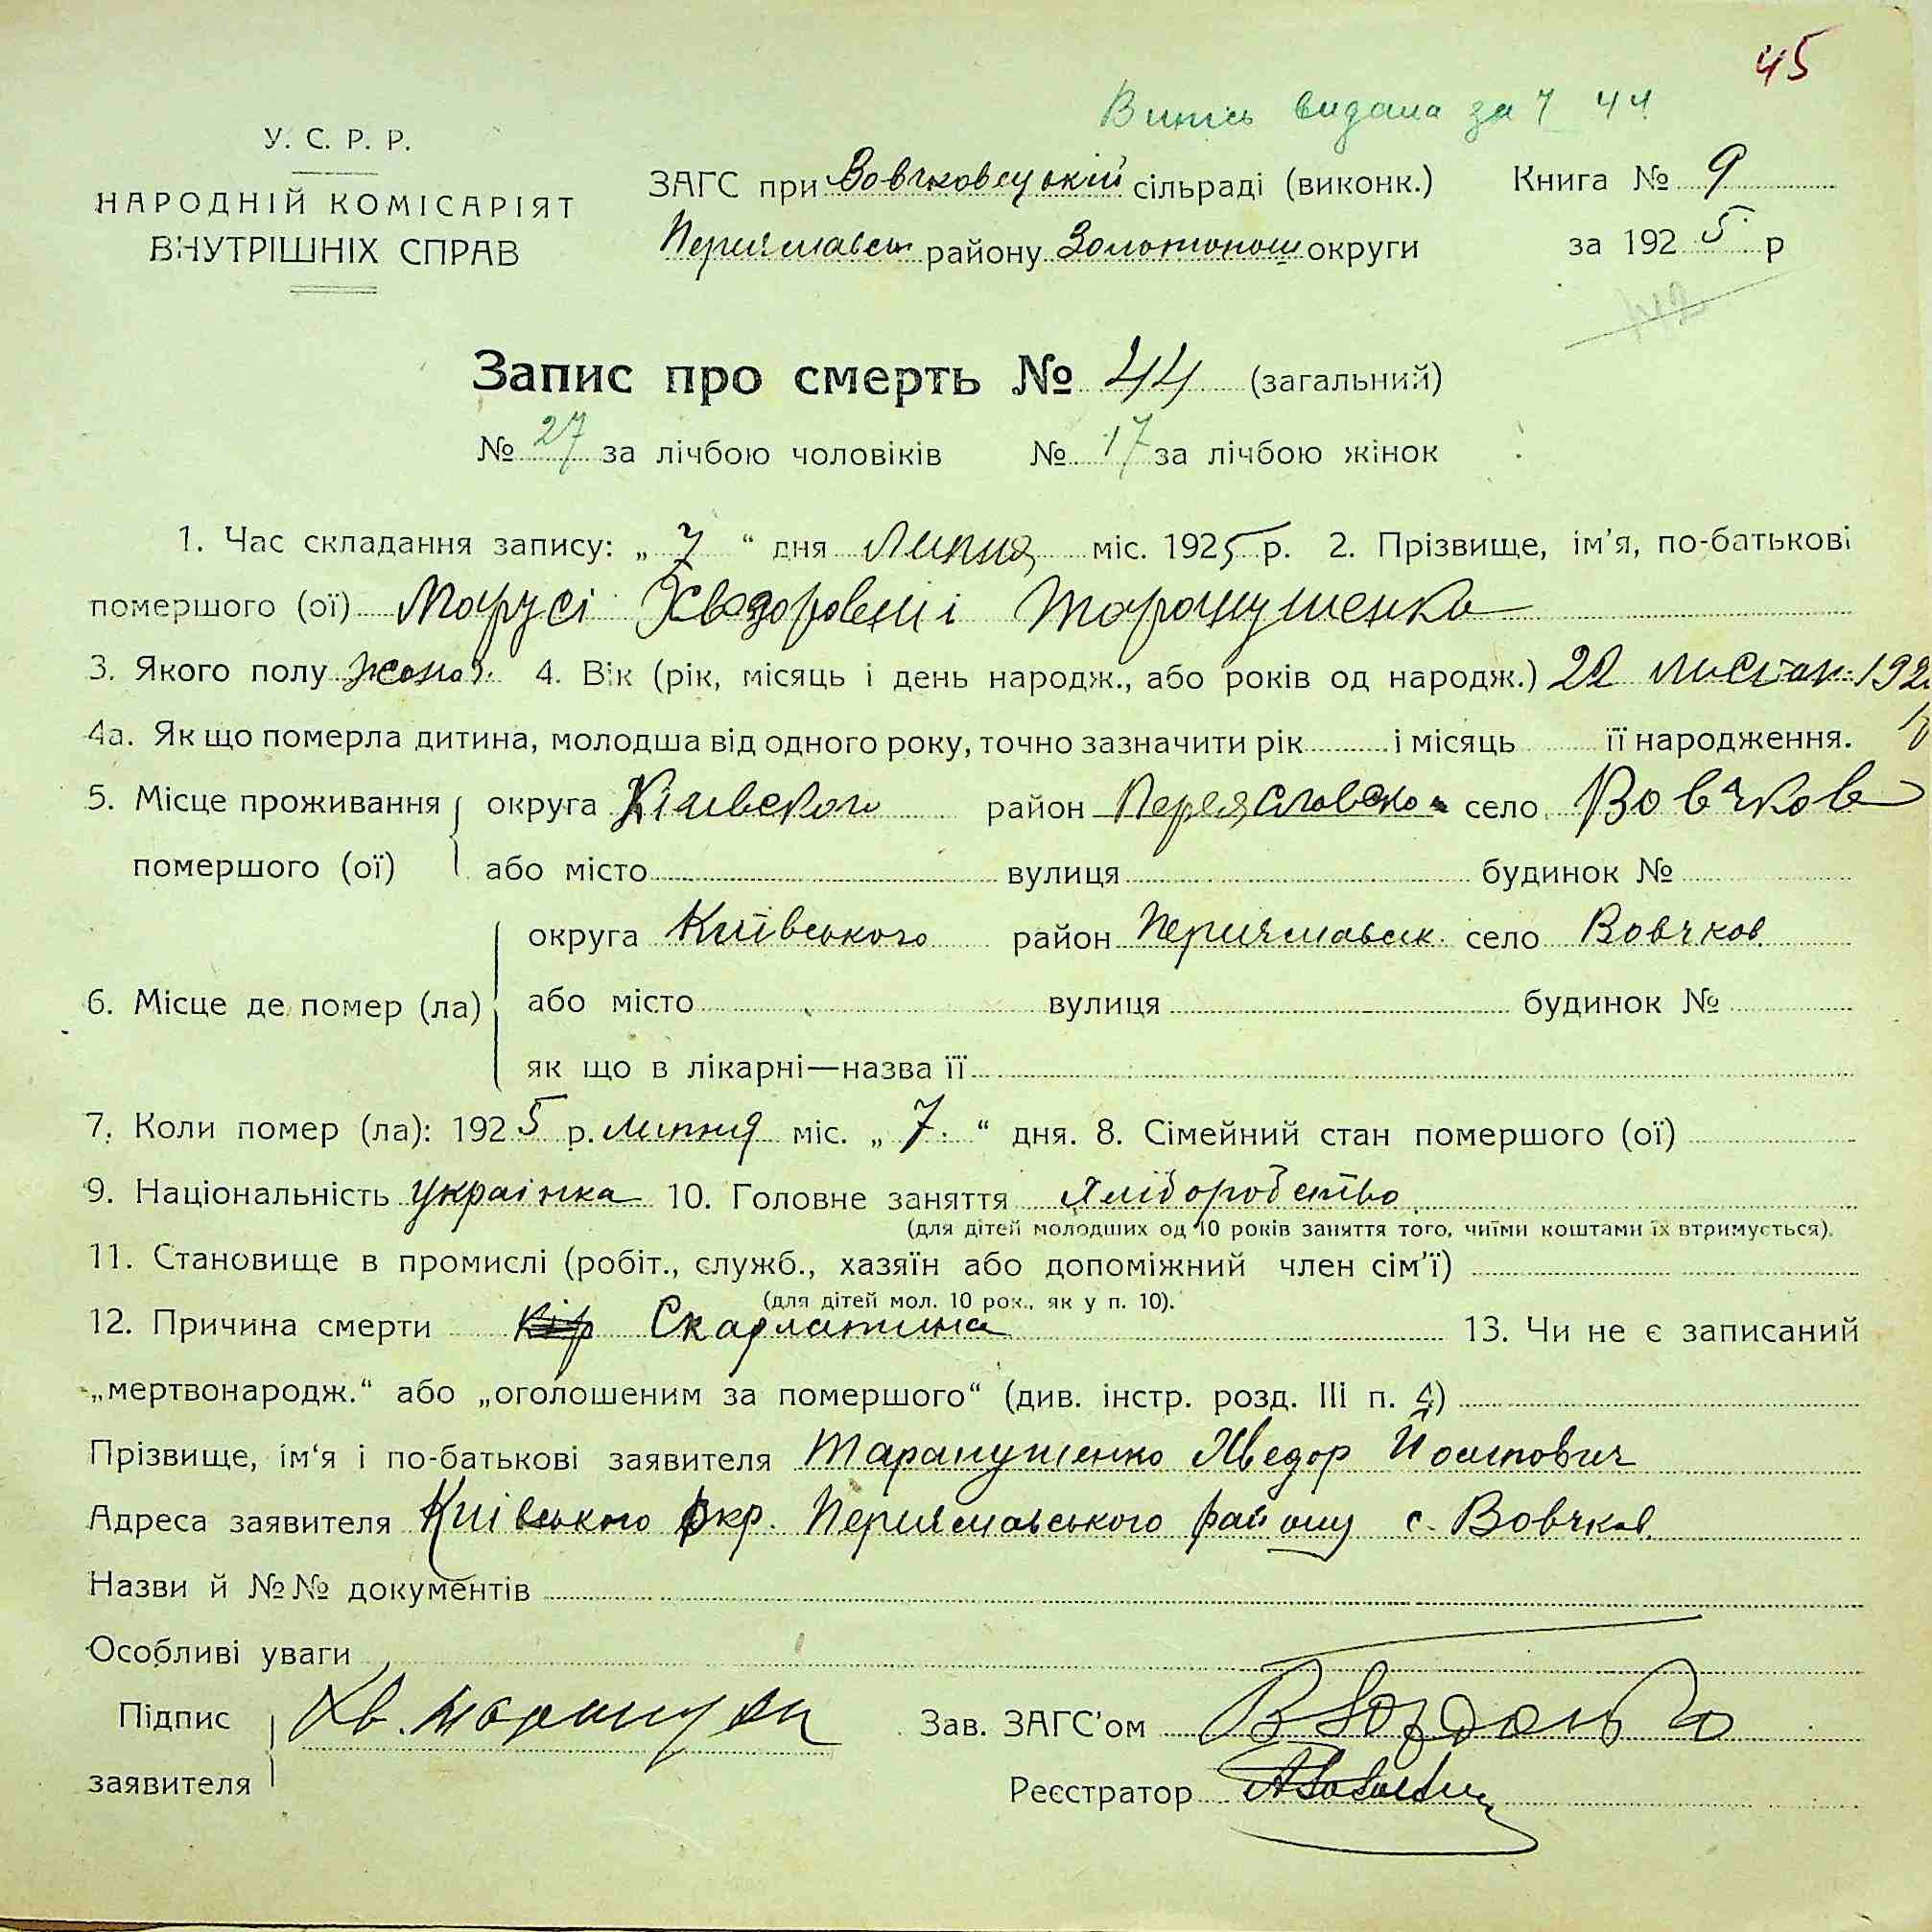 45
Витяг видана за 7 44
У. С. Р. Р.
НАРОДНІЙ КОМІСАРІЯТ
ВНУТРІШНІХ СПРАВ
ЗАГС при Вовчковецькій сільраді (виконк.) Книга № 9
Переяславськ району Золотонош округи за 1925 р
Запис про смерть № 44 (загальний)
№ 27 за лічбою чоловіків № 17 за лічбою жінок
1. Час складання запису: „ 7 “ дня Липня міс. 1925 р. 2. Прізвище, ім’я, по-батькові
помершого (ої) Марусі Хведоровни Таранушенко
3. Якого полу 4. Вік (рік, місяць і день народж., або років од народж.) 22 листоп. 192
4а. Як що померла дитина, молодша від одного року, точно зазначити рік і місяць її народження.
5. Місце проживання округа Київського район Переяславско село Вовчков
помершого (ої) або місто вулиця будинок №
округа Київського район Переяславськ. село Вовчков
6. Місце де помер (ла) або місто вулиця будинок №
як що в лікарні—назва її
7. Коли помер (ла): 1925 р. липня міс. „ 7. “ дня. 8. Сімейний стан помершого (ої)
9. Національність українка 10. Головне заняття хліборобство
(для дітей молодших од 10 років заняття того, чиїми коштами їх втримується).
11. Становище в промислі (робіт., служб., хазяїн або допоміжний член сім’ї)
(для дітей мол. 10 рок., як у п. 10).
12. Причина смерти Кір Скарлатина 13. Чи не є записаний
„мертвонародж.“ або „оголошеним за помершого“ (див. інстр. розд. III п. 4)
Прізвище, ім‘я і по-батькові заявителя Таранушенко Хведор Йосипович
Адреса заявителя Київського Окр. Переяславського району с. Вовчков
Назви й №№ документів
Особливі уваги
Підпис Хв. Зав. ЗАГС’ом
заявителя Реєстратор